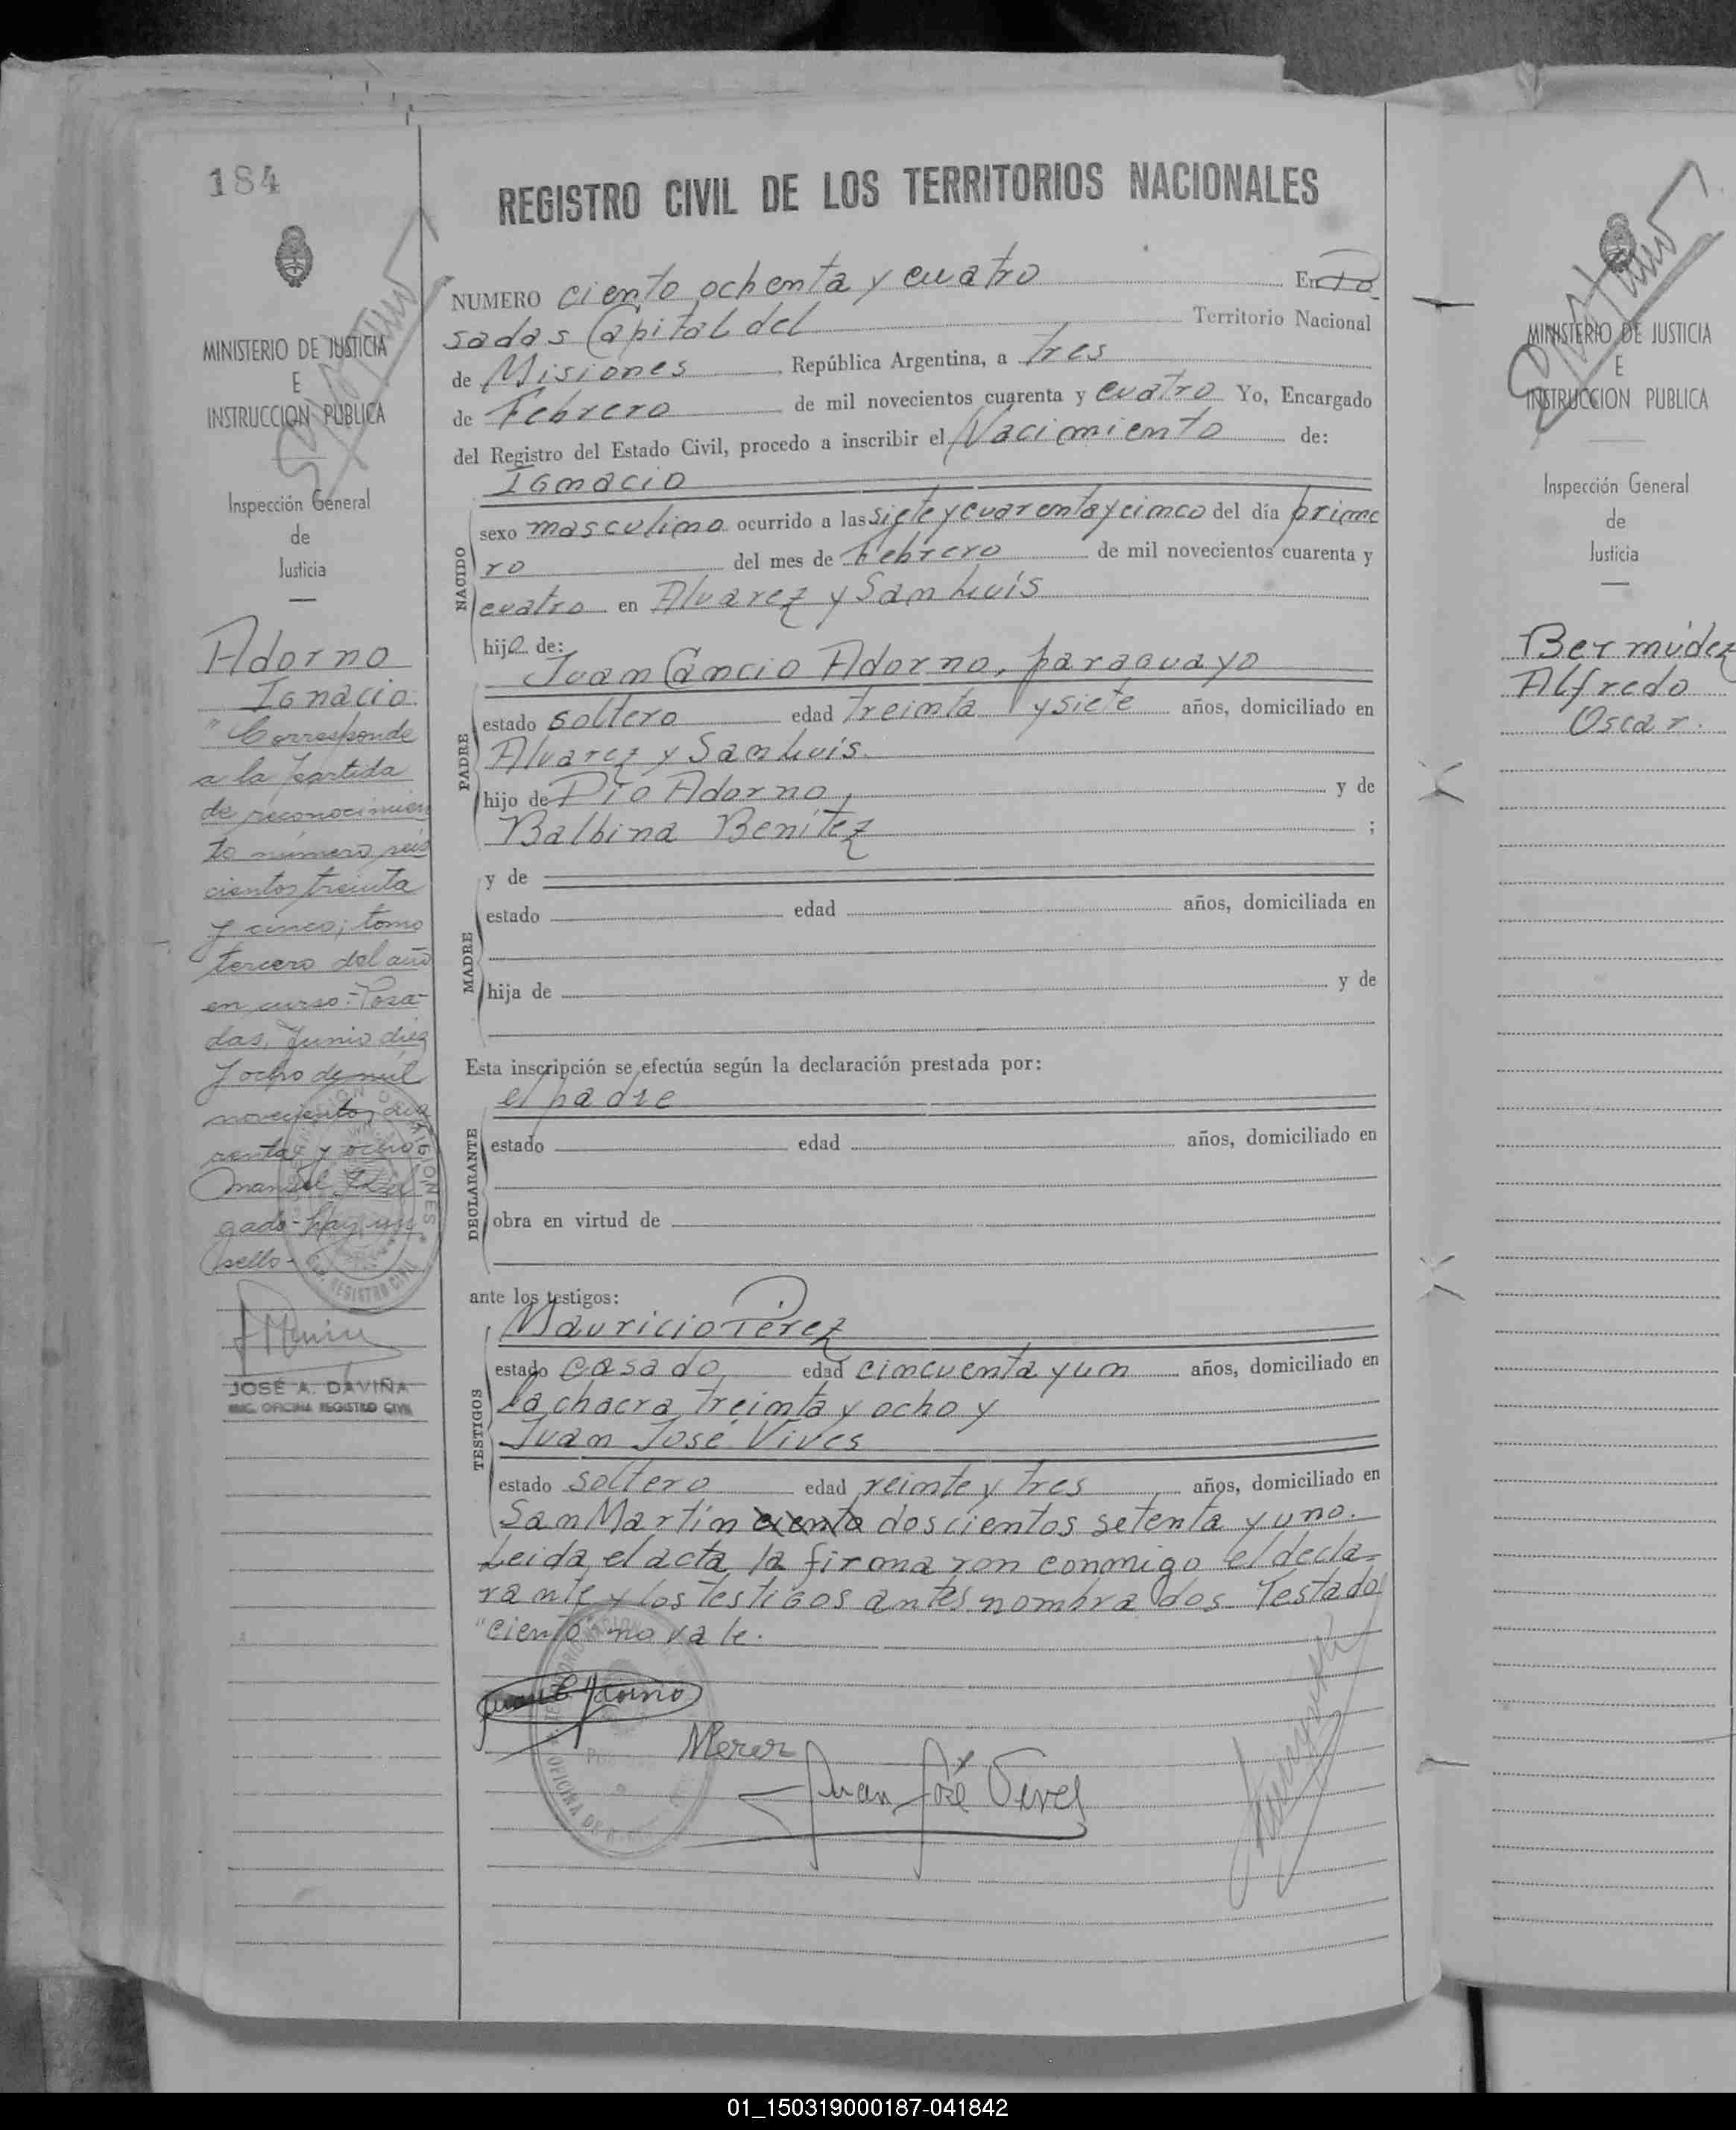 184
MINISTERIO DE JUSTICIA
E
INSTRUCCION PUBLICA
Inspección General
de
Justicia
Adorno
Ignacio
"Corresponde
a la partida
de reconocimien
to número seis
cientos treinta
y cinco; tomo
tercero del año
en curso.- Posa-
das, Junio diez
y ocho de mil
novecientos cua
renta y ocho
Manuel
gado - hay un
sello -
JOSÉ A. DAVIÑA
ENC. OFICINA REGISTRO CIVIL
REGISTRO CIVIL DE LOS TERRITORIOS NACIONALES
NUMERO ciento ochenta y cuatro En Po
sadas Capital del Territorio Nacional
de Misiones, República Argentina, a tres
de Febrero de mil novecientos cuarenta y cuatro Yo, Encargado
del Registro del Estado Civil, procedo a inscribir el Nacimiento de:
Ignacio
NACIDO
sexo masculino ocurrido a las siete y cuarenta y cinco del día prime
ro del mes de Febrero de mil novecientos cuarenta y
cuatro en Alvarez y San Luís
hijo de:
Juan Cancio Adorno, paraguayo
PADRE
estado soltero edad treinta y siete años, domiciliado en
Alvarez y San Luís.
hijo de Pío Adorno, y de
Balbina Benítez ;
y de
MADRE
estado edad años, domiciliada en
hija de y de
Esta inscripción se efectúa según la declaración prestada por:
el padre
DECLARANTE
estado edad años, domiciliado en
obra en virtud de
ante los testigos:
Mauricio Pérez
TESTIGOS
estado casado edad cincuenta y un años, domiciliado en
la chacra treinta y ocho y
Juan José Vives
estado soltero edad veinte y tres años, domiciliado en
San Martín ciento doscientos setenta y uno.
Leida el acta la firmaron conmigo el decla-
rante y los testigos antes nombrados. Testado
"ciento" no vale.
Juan C Adorno
Juan José Vives
MINISTERIO DE JUSTICIA
E
INSTRUCCION PUBLICA
Inspección General
de
Justicia
Bermúdez
Alfredo
Oscar.
01_150319000187-041842